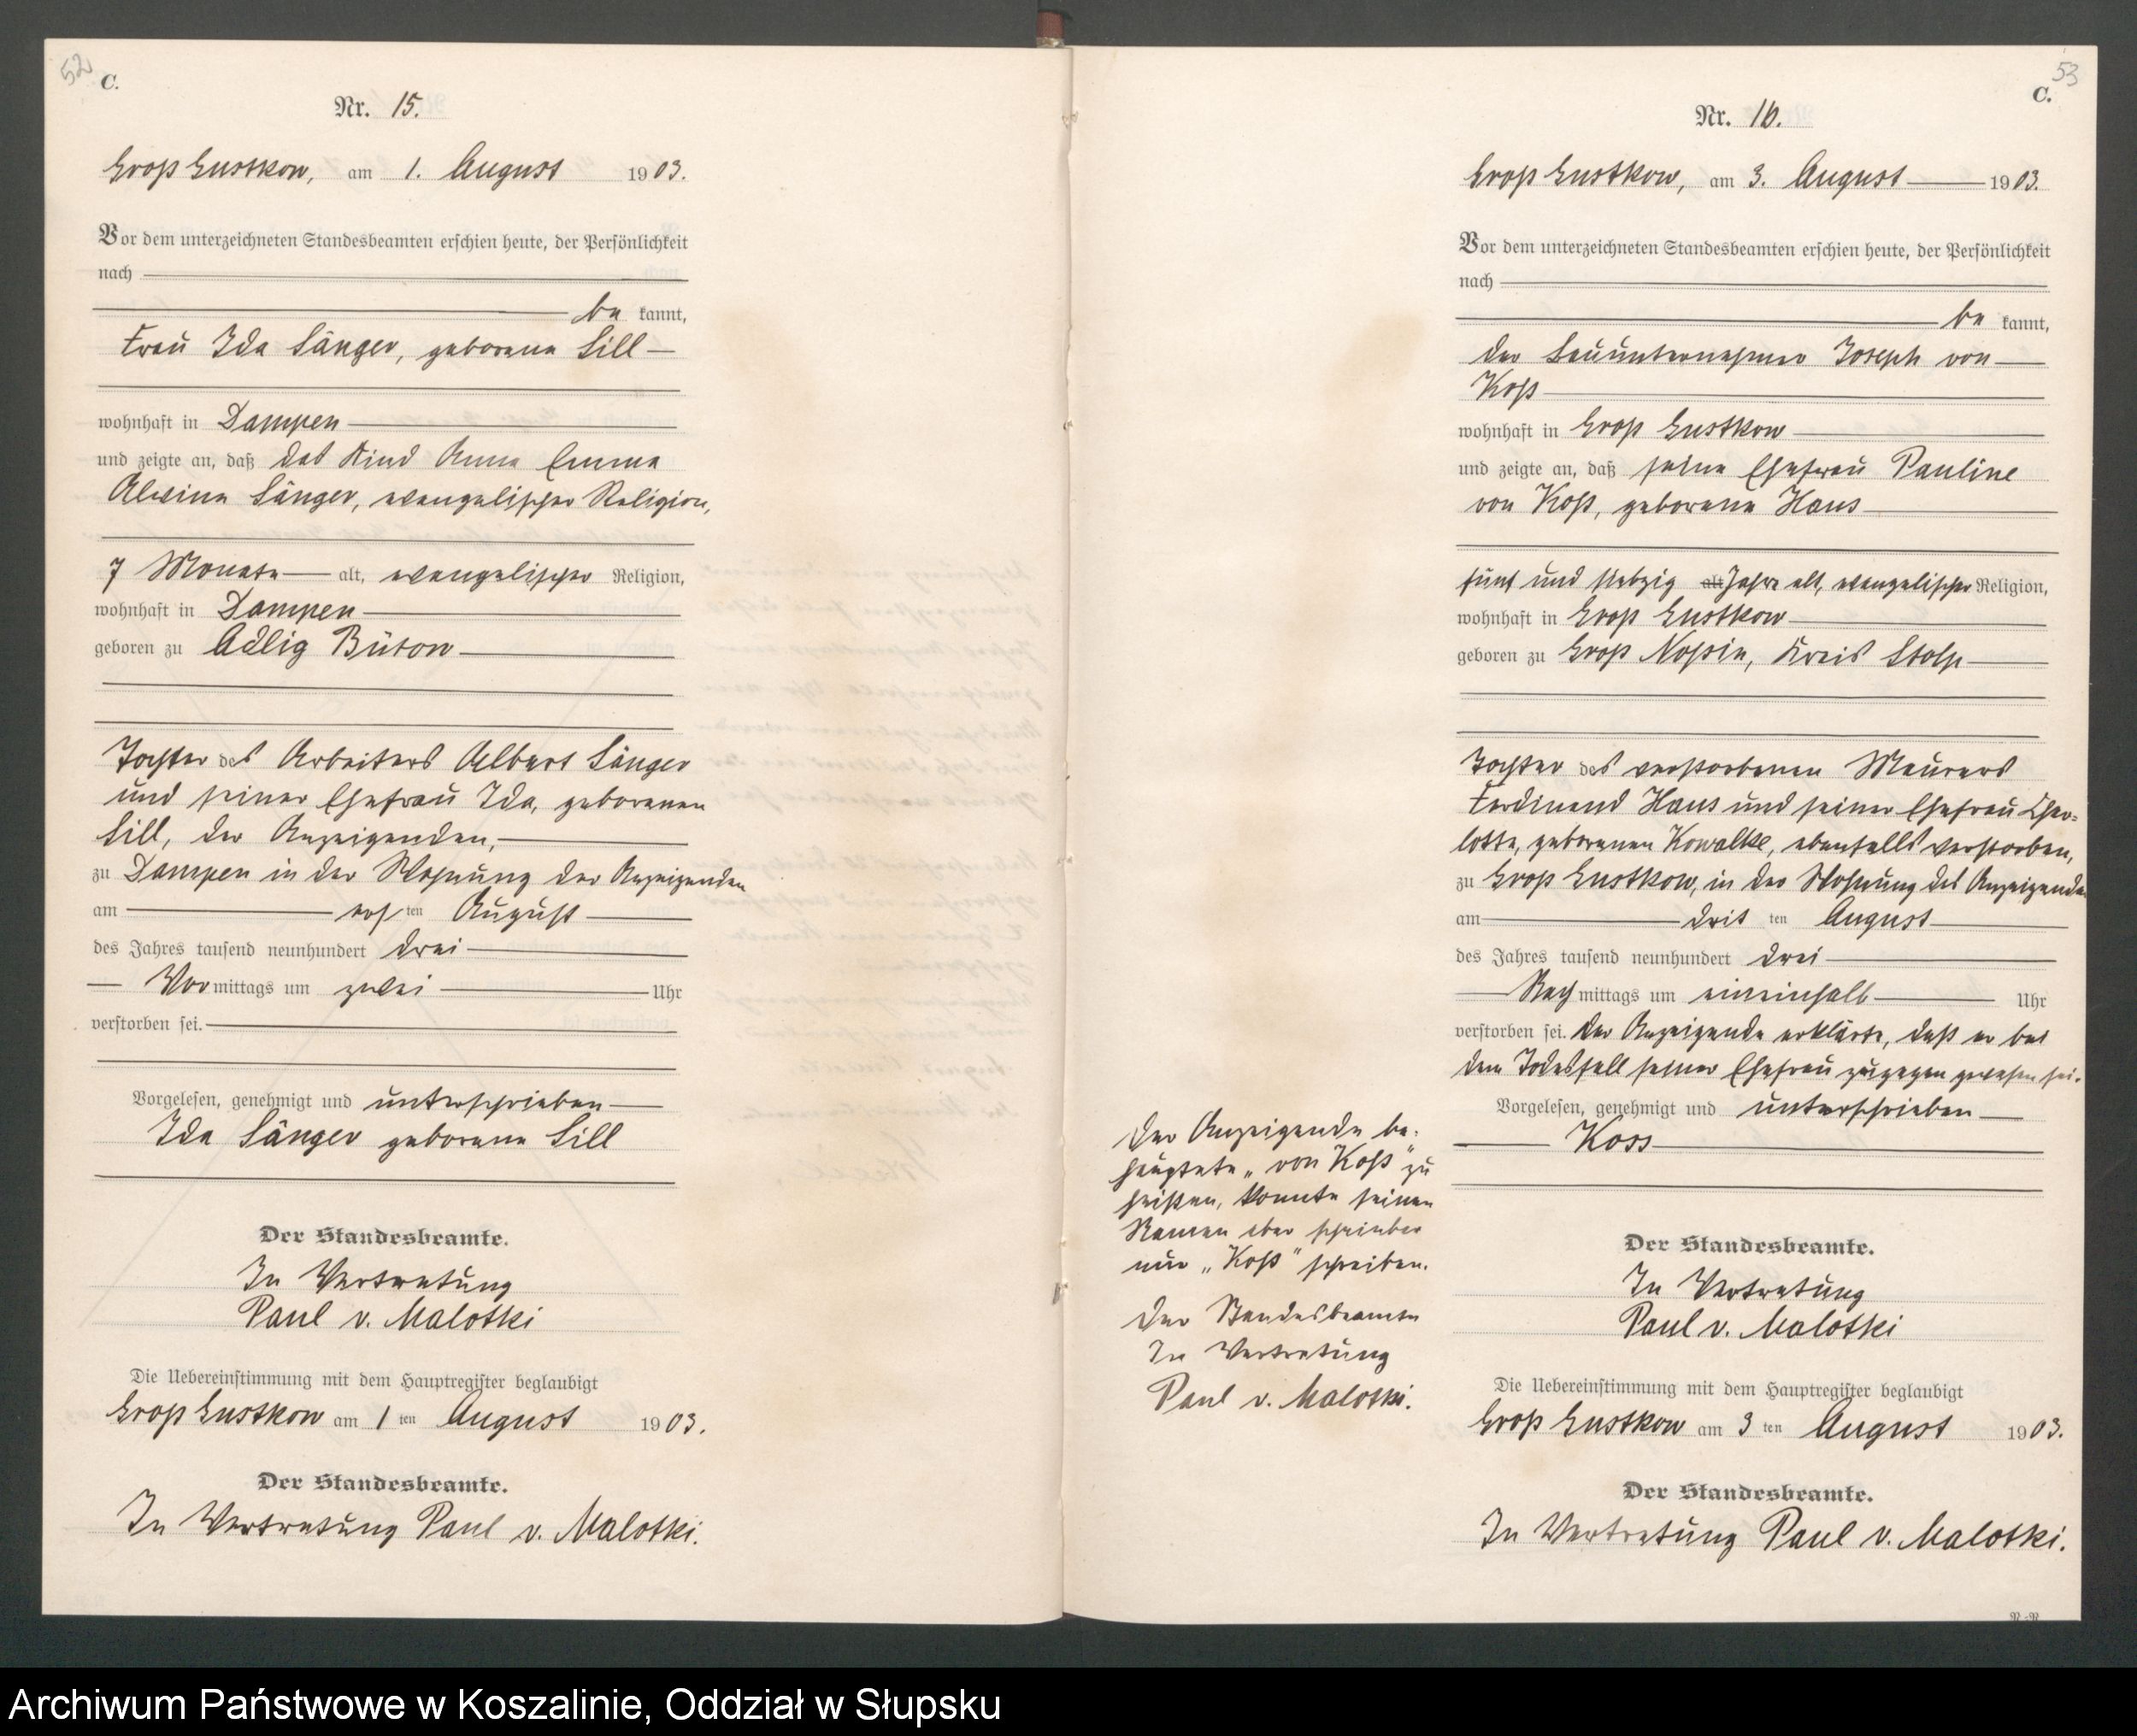 52
C.
Nr. 15.
Groß Gustkow, am 1. August 1903.
Vor dem unterzeichneten Standesbeamten erschien heute, der Persönlichkeit
nach
be kannt,
Frau Ida Sänger, geborene Sill
wohnhaft in Dampen
und zeigte an, daß das Kind Anna Emma
Alwine Sänger, evangelischer Religion,
7 Monate alt, evangelischer Religion,
wohnhaft in Dampen
geboren zu Adlig Bütow
Tochter des Arbeiters Albert Sänger
und seiner Ehefrau Ida, geborenen
Sill, der Anzeigenden,
zu Dampen in der Wohnung der Anzeigenden
am ersten August
des Jahres tausend neunhundert drei
Vormittags um zwei Uhr
verstorben sei.
Vorgelesen, genehmigt und unterschrieben
Ida Sänger geborene Sill
Der Standesbeamte.
In Vertretung
Paul v. Malotki
Die Uebereinstimmung mit dem Hauptregister beglaubigt
Groß Gustkow am 1 ten August 1903.
Der Standesbeamte.
In Vertretung Paul v. Malotki.
53
C.
Nr. 16.
Groß Gustkow, am 3. August 1903.
Vor dem unterzeichneten Standesbeamten erschien heute, der Persönlichkeit
nach
be kannt,
der Bauunternehmer Joseph von
Koß
wohnhaft in Groß Gustkow
und zeigte an, daß seine Ehefrau Pauline
von Koß, geborene Haus
fünf und siebzig alt Jahre alt, evangelischer Religion,
wohnhaft in Groß Gustkow
geboren zu Groß Nossin, Kreis Stolp
Tochter des verstorbenen Maurers
Ferdinand Haus und seiner Ehefrau Char-
lotte, geborenen Kowalke, ebenfalls verstorben,
zu Groß Gustkow, in der Wohnung des Anzeigenden
am dritten August
des Jahres tausend neunhundert drei
Nachmittags um eineinhalb Uhr
verstorben sei. Der Anzeigende erklärte, daß er bei
dem Todesfall seiner Ehefrau zugegen gewesen sei.
Vorgelesen, genehmigt und unterschrieben
Koss
Der Anzeigende be-
hauptete „von Koß" zu
heißen, konnte seinen
Namen aber
nur „Koß" schreiben.
Der Standesbeamte
In Vertretung
Paul v. Malotki.
Der Standesbeamte.
In Vertretung
Paul v. Malotki
Die Uebereinstimmung mit dem Hauptregister beglaubigt
Groß Gustkow am 3 ten August 1903.
Der Standesbeamte.
In Vertretung Paul v. Malotki.
Archiwum Państwowe w Koszalinie, Oddział w Słupsku